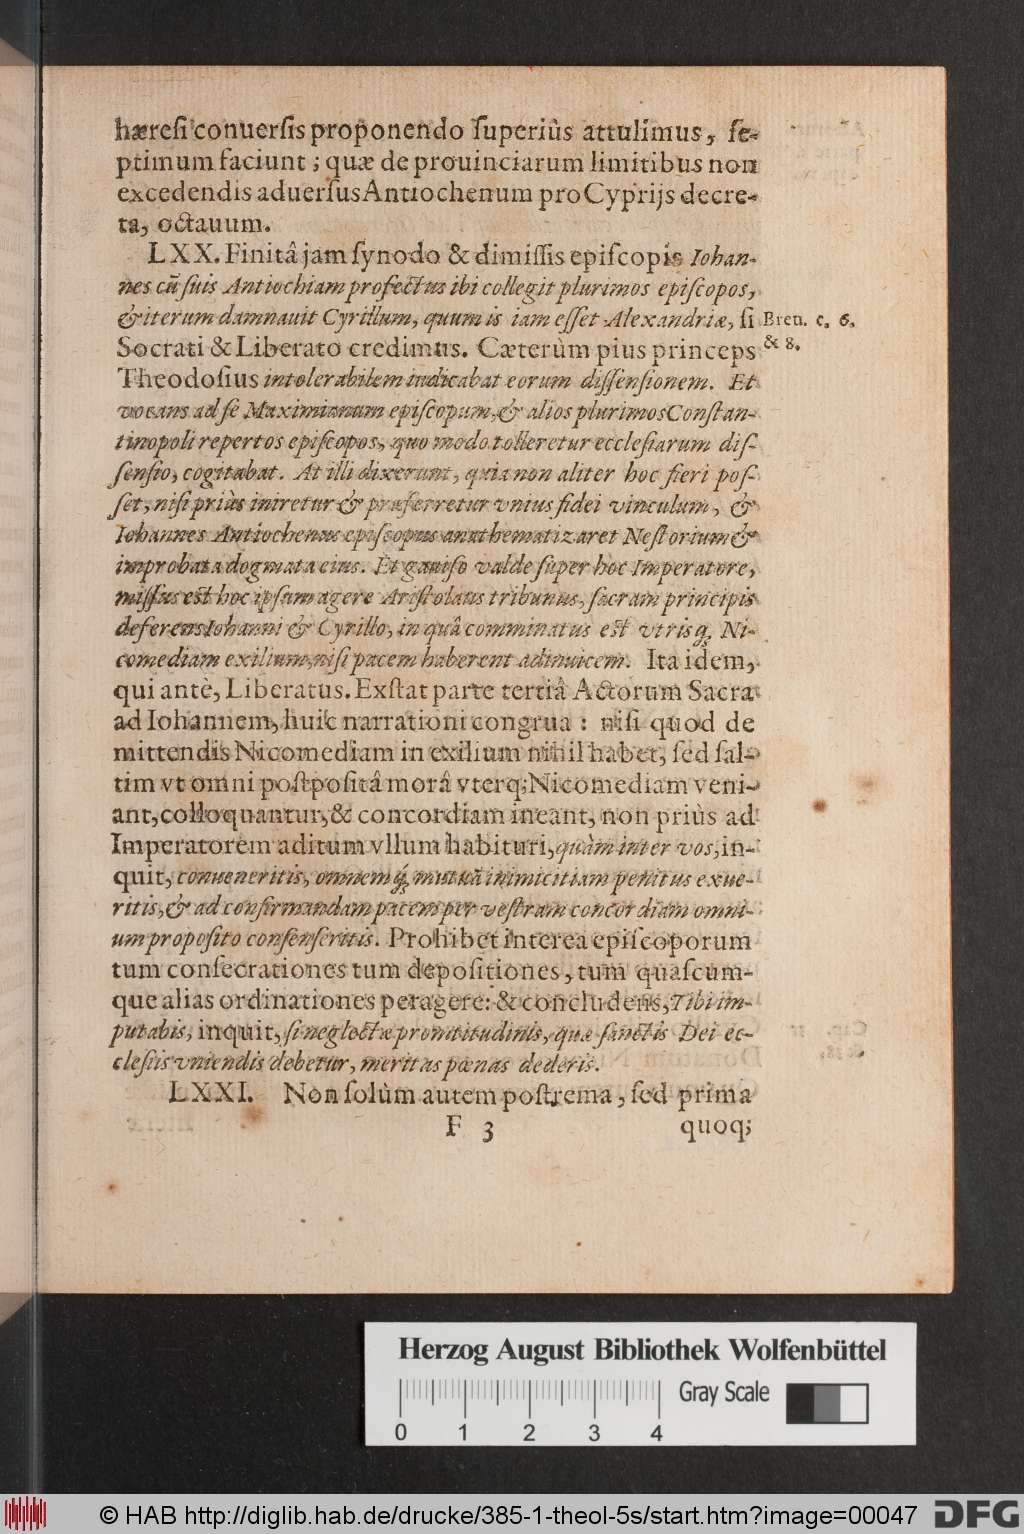 hæreſi conuerſis proponendo ſuperiùs attulimus, ſe-
ptimum faciunt; quæ de prouinciarum limitibus non
excedendis aduerſus Antiochenum pro Cyprijs decre-
ta, octauum.
LXX. Finitâ jam ſynodo & dimiſſis epiſcopis Iohan-
nes cū ſuis Antiochiam profectus ibi collegit plurimos epiſcopos,
& iterum damnauit Cyrillum, quum is iam eſſet Alexandriæ, ſi Breu. c. 6.
Socrati & Liberato credimus. Cæterùm pius princeps & 8.
Theodoſius intolerabilem iudicabat eorum diſſenſionem. Et
vocans ad ſe Maximianum epiſcopum, & alios plurimos Conſtan-
tinopoli repertos epiſcopos, quo modo tolleretur eccleſiarum diſ-
ſenſio, cogitabat. At illi dixerunt, quia non aliter hoc fieri poſ-
ſet, niſi priùs iniretur & præferretur vnius fidei vinculum, &
Iohannes Antiochenus epiſcopus anathematizaret Neſtorium &
improbata dogmata eius. Et gauiſo valde ſuper hoc Imperatore,
miſſus est hoc ipſum agere Ariſtolaus tribunus, ſacram principis
deferens Iohanni & Cyrillo, in quâ comminatus est vtrisq; Ni-
comediam exilium, niſi pacem haberent adinuicem. Ita idem,
qui antè, Liberatus. Exſtat parte tertiâ Actorum Sacra
ad Iohannem, huic narrationi congrua: niſi quod de
mittendis Nicomediam in exilium nihil habet, ſed ſal-
tim vt omni poſtpoſitâ morâ vterq; Nicomediam veni-
ant, colloquantur, & concordiam ineant, non priùs ad
Imperatorem aditum vllum habituri, quàm inter vos, in-
quit, conueneritis, omnemq́; mutuā inimicitiam penitus exue-
ritis, & ad confirmandam pacem per veſtram concordiam omni-
um propoſito conſenſeritis. Prohibet interea epiſcoporum
tum conſecrationes tum depoſitiones, tum quaſcum-
que alias ordinationes peragere: & concludens, Tibi im-
putabis, inquit, ſi neglectæ promtitudinis, quæ ſanctis Dei ec-
cleſiis vniendis debetur, meritas pœnas dederis.
LXXI. Non ſolùm autem poſtrema, ſed prima
F 3 quoq;
Herzog August Bibliothek Wolfenbüttel
Gray Scale
0 1 2 3 4
© HAB http://diglib.hab.de/drucke/385-1-theol-5s/start.htm?image=00047 DFG